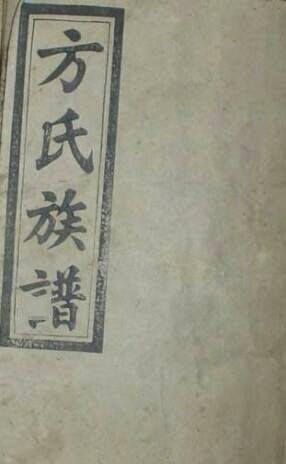 方氏族譜